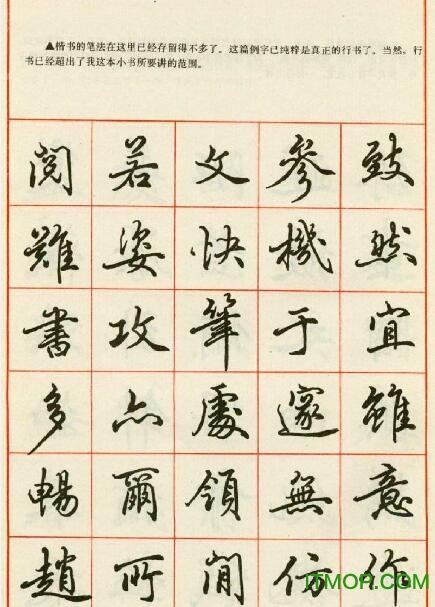 ▲楷书的笔法在这里已经存留得不多了。这篇例字已纯粹是真正的行书了。当然，行
书已经超出了我这本小书所要讲的范围。
閱若文參致
難姿快機然
書攻筆于宜
多處邃雖
暢爾領無意
趙所間仿作
ITMOP.COM